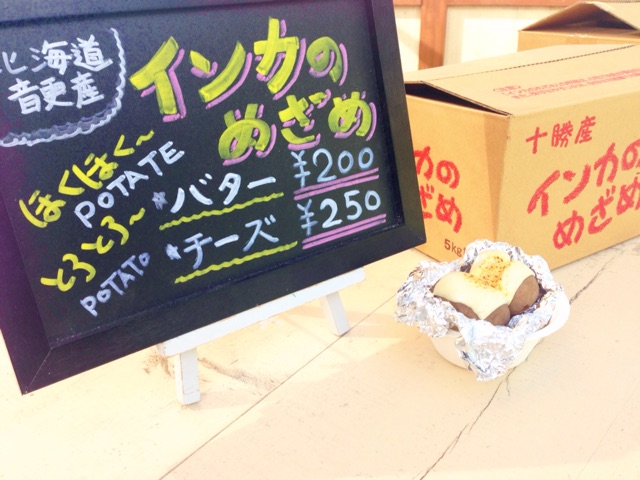 北海道
音更産
インカの
めざめ
ほくほく〜
POTATE
とろとろ〜
POTATO
*バター ¥200
*チーズ ¥250
十勝産
インカの
めざめ
カの
め
5kg